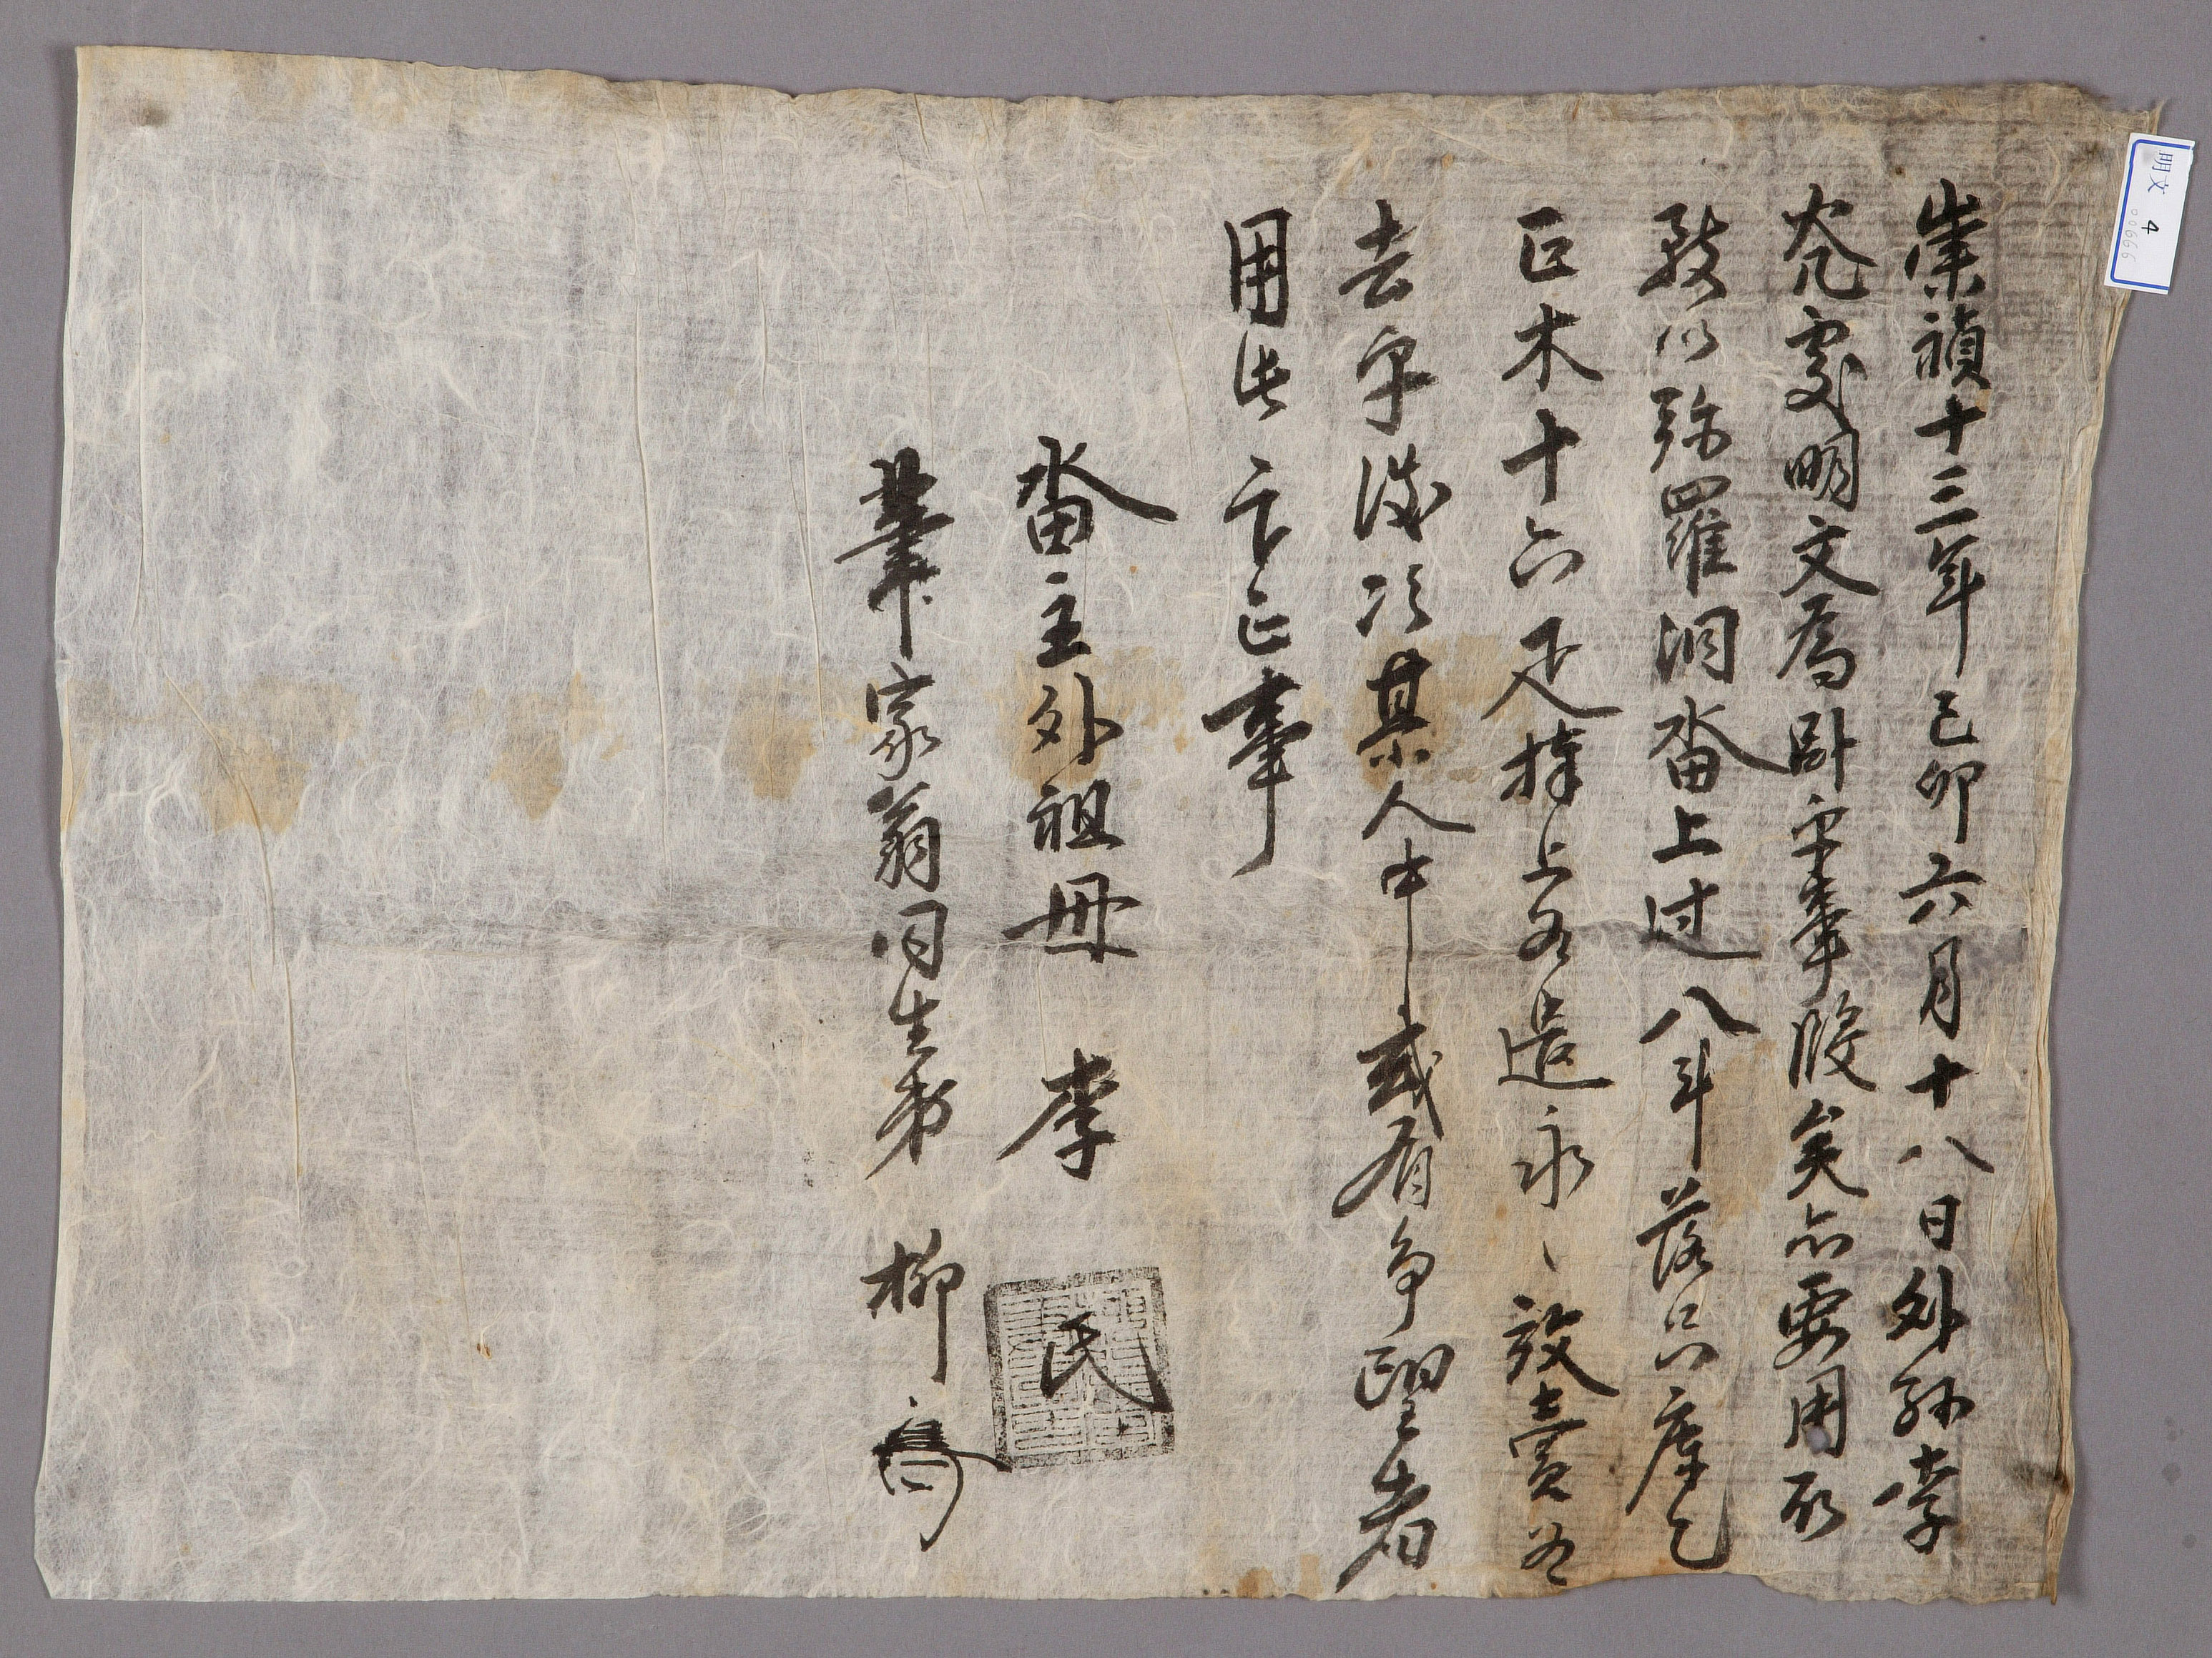 崇禎十三年己卯六月十八日外孫李
處明文爲卧乎事段矣亦要用所
致以弥羅洞畓上过八斗落只庫乙
正木十六疋捧上爲遣永〻放賣爲
去乎後次某人中或有爭望者
用此卞正事
畓主外祖母 李氏
筆家翁同生弟 柳
明文 4
00666